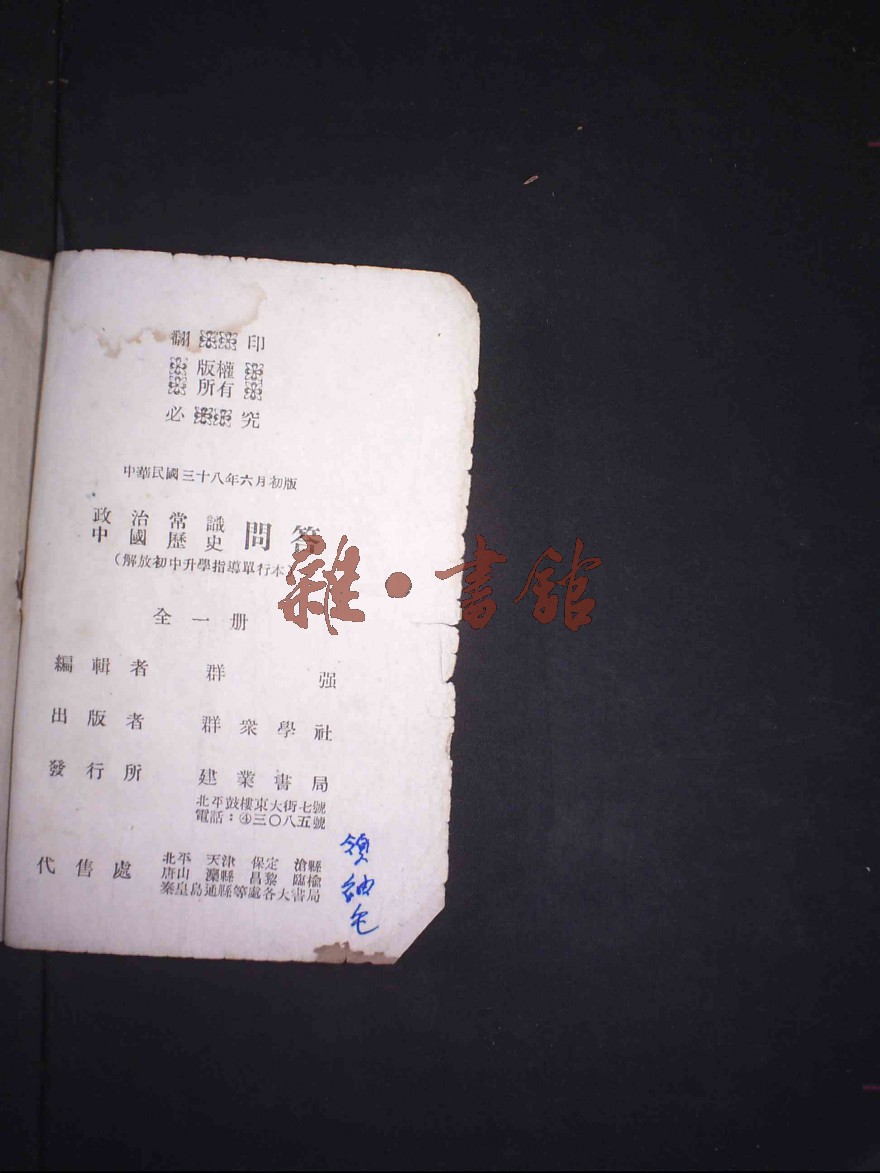 翻 印
版權
所有
必 究
中華民國三十八年六月初版
政治常識
中國歷史 問答
（解放初中升學指導單行本）
全一册
編輯者 群 强
出版者 群衆學社
發行所 建業書局
北平鼓樓東大街七號
電話：④三〇八五號
代售處 北平 天津 保定 滄縣
唐山 灤縣 昌黎 臨榆
秦皇島通縣等處各大書局
領袖毛
雜·書館